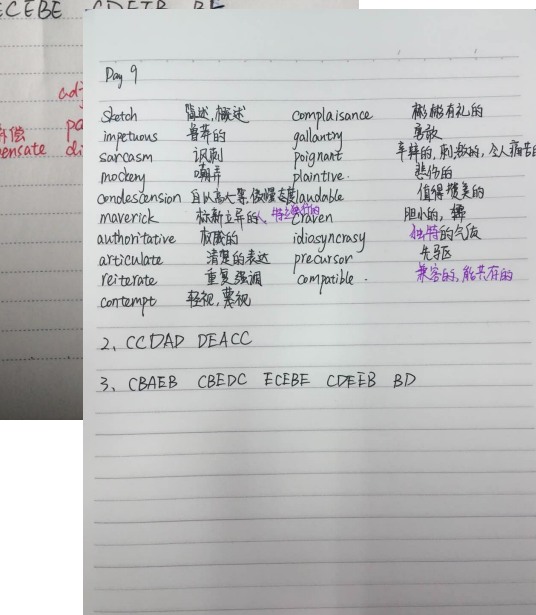 ECEBE CDEIB BE
adj
补偿 pa
pensate di
Day 9
sketch 简述,概述 complaisance 彬彬有礼的
impetuous 鲁莽的 gallantry 勇敢
sarcasm 讽刺 poignant 辛辣的,刺激的,令人痛苦的
mockery 嘲弄 plaintive. 悲伤的
condescension 自以高人一等,傲慢态度 laudable 值得赞美的
maverick 标新立异的人,特立独行的 craven 胆小的,
authoritative 权威的 idiasyncrasy 独特的气质
articulate 清楚的表达 precursor 先驱
reiterate 重复强调 compatible. 兼容的,能共存的
contempt 轻视,蔑视
2、CCDAD DEACC
3、CBAEB CBEDC ECEBE CDEEB BD